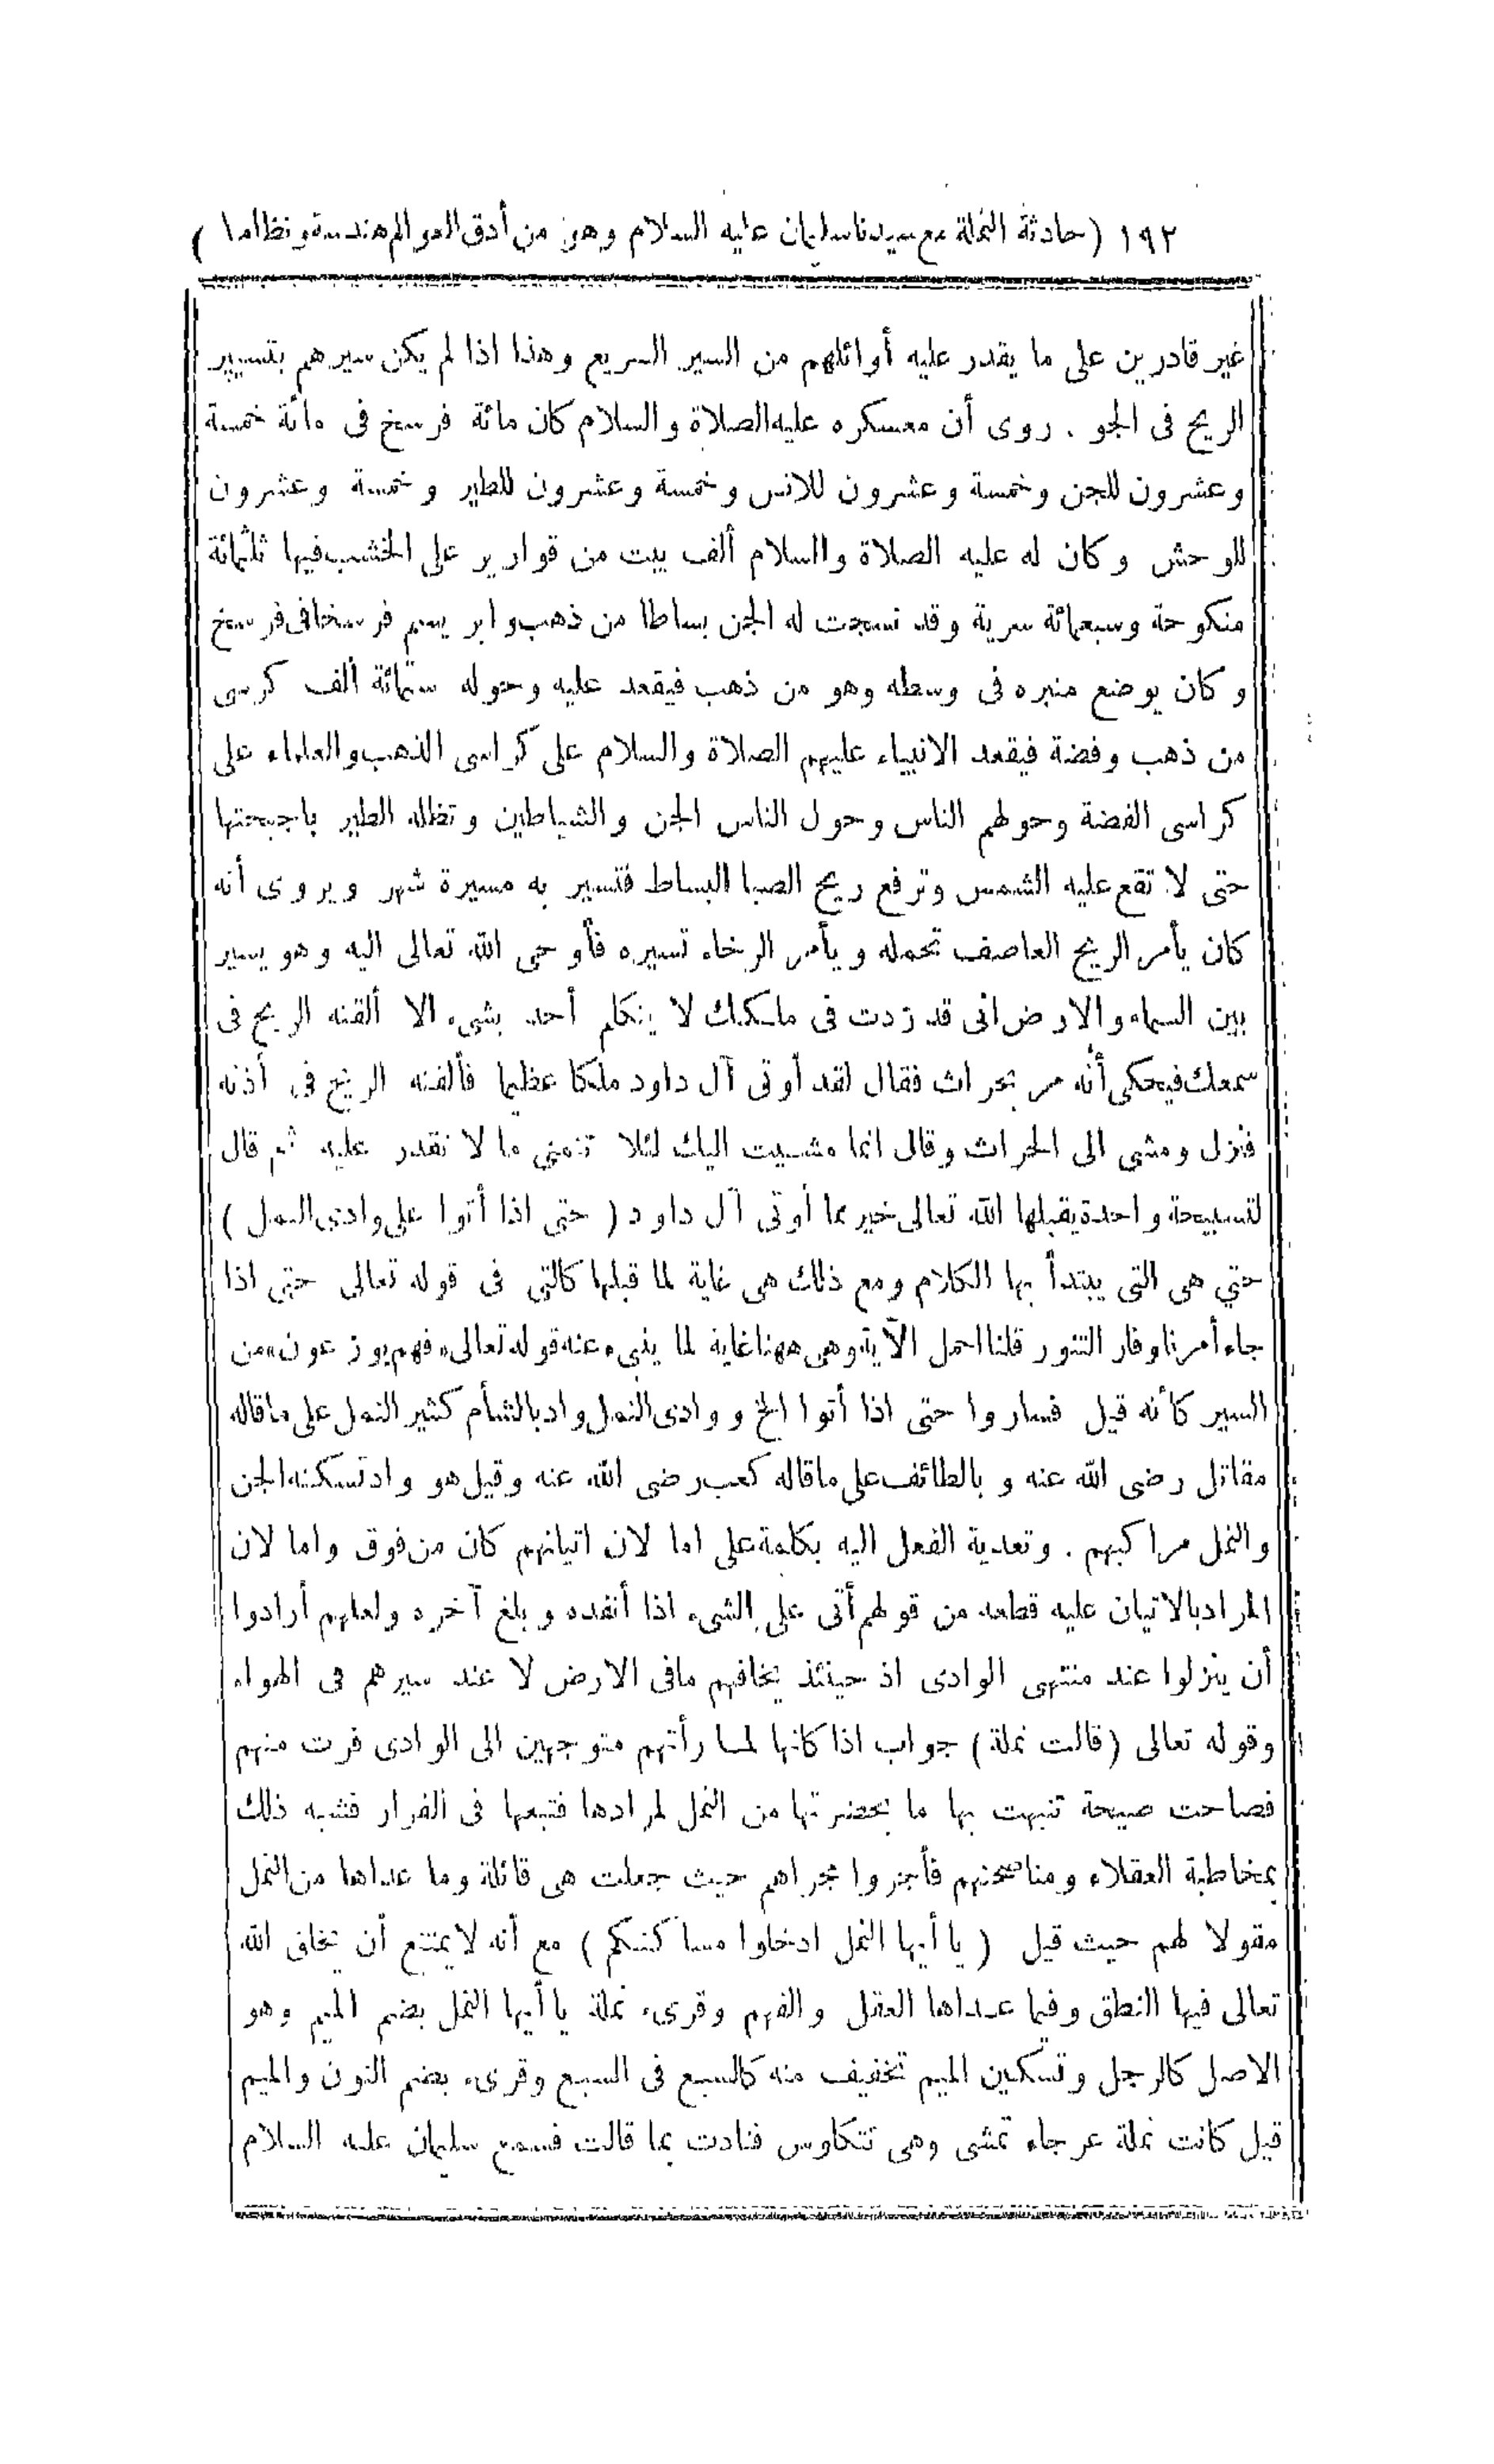 ١٩٢ (حادثة النملة مع سيدنا سليمان عليه السلام وهى من أدق العوالم هندسة ونظاما)
غير قادرين على ما يقدر عليه أوائلهم من السير السريع وهذا اذا لم يكن سيرهم بتسيير
الريح فى الجو . روى أن معسكره عليه الصلاة والسلام كان مائة فرسخ فى مائة خمسة
وعشرون للجن وخمسة وعشرون للانس وخمسة وعشرون للطير وخمسة وعشرون
للوحش وكان له عليه الصلاة والسلام ألف بيت من قوارير على الخشب فيها ثلثمائة
منكوحة وسبعمائة سرية وقد نسجت له الجن بساطا من ذهب وابريسم فرسخا فى فرسخ
وكان يوضع منبره فى وسطه وهو من ذهب فيقعد عليه وحوله ستمائة ألف كرسى
من ذهب وفضة فيقعد الانبياء عليهم الصلاة والسلام على كراسى الذهب والعلماء على
كراسى الفضة وحولهم الناس وحول الناس الجن والشياطين وتظله الطير باجنحتها
حتى لا تقع عليه الشمس وترفع ريح الصبا البساط فتسير به مسيرة شهر ويروى أنه
كان يأمر الريح العاصف تحمله ويأمر الرخاء تسيره فأوحى الله تعالى اليه وهو يسير
بين السماء والارض انى قد زدت فى ملكك لا يتكلم أحد بشىء الا ألقته الريح فى
سمعك فيحكى أنه مر بحراث فقال لقد أوتى آل داود ملكا عظيما فألقته الريح فى أذنه
فنزل ومشى الى الحراث وقال انما مشيت اليك لئلا تتمنى ما لا تقدر عليه ثم قال
لتسبيحة واحدة يقبلها الله تعالى خير مما أوتى آل داود (حتى اذا أتوا على وادى النمل)
حتي هى التى يبتدأ بها الكلام ومع ذلك هى غاية لما قبلها كالتى فى قوله تعالى حتى اذا
جاء أمرنا وفار التنور قلنا احمل الآية وهى ههنا غاية لما ينبىء عنه قوله تعالى «فهم يوزعون» من
السير كأنه قيل فساروا حتى اذا أتوا الخ ووادى النمل واد بالشأم كثير النمل على ماقاله
مقاتل رضى الله عنه وبالطائف على ماقاله كعب رضى الله عنه وقيل هو واد تسكنه الجن
والنمل مراكبهم . وتعدية الفعل اليه بكلمة على اما لان اتيانهم كان من فوق واما لان
المراد بالاتيان عليه قطعه من قولهم أتى على الشىء اذا أنفده وبلغ آخره ولعلهم أرادوا
أن ينزلوا عند منتهى الوادى اذ حينئذ يخافهم مافى الارض لا عند سيرهم فى الهواء
وقوله تعالى (قالت نملة) جواب اذا كانها لما رأتهم متوجهين الى الوادى فرت منهم
فصاحت صيحة تنبهت بها ما بحضرتها من النمل لمرادها فتبعها فى الفرار فشبه ذلك
بمخاطبة العقلاء ومناصحتهم فأجروا مجراهم حيث جعلت هى قائلة وما عداها من النمل
مقولا لهم حيث قيل (يا أيها النمل ادخلوا مساكنكم) مع أنه لايمتنع أن يخلق الله
تعالى فيها النطق وفيما عداها العقل والفهم وقرىء نملة يا أيها النمل بضم الميم وهو
الاصل كالرجل وتسكين الميم تخفيف منه كالسبع فى السبع وقرىء بضم النون والميم
قيل كانت نملة عرجاء تمشى وهى تتكاوس فنادت بما قالت فسمع سليمان عليه السلام